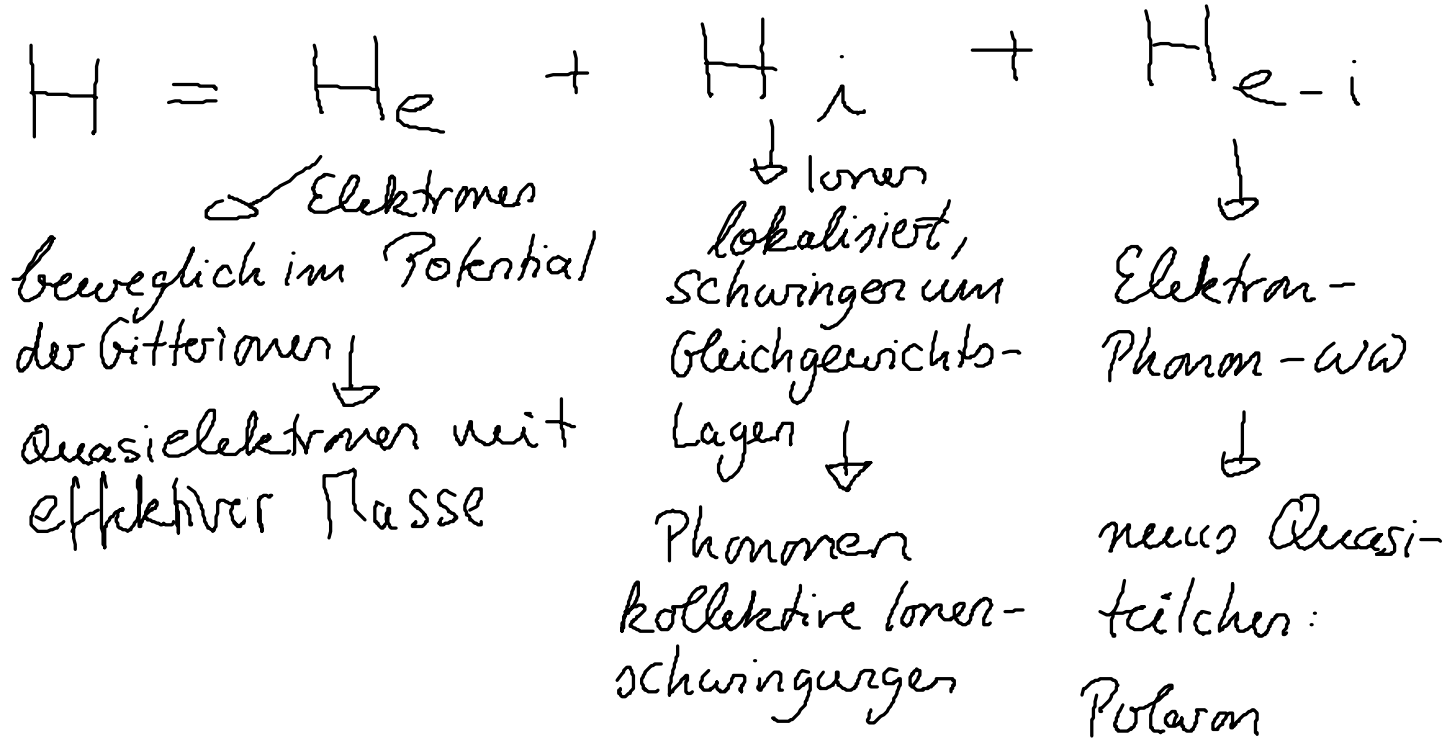 H = He + Hi + He-i
Elektronen
beweglich im Potential
der Gitterionen
Quasielektronen mit
effektiver Masse
Ionen
lokalisiert,
schwingen um
Gleichgewichts-
Lagen
Phononen
kollektive Ionen-
schwingungen
Elektron-
Phonon-WW
neues Quasi-
teilchen:
Polaron